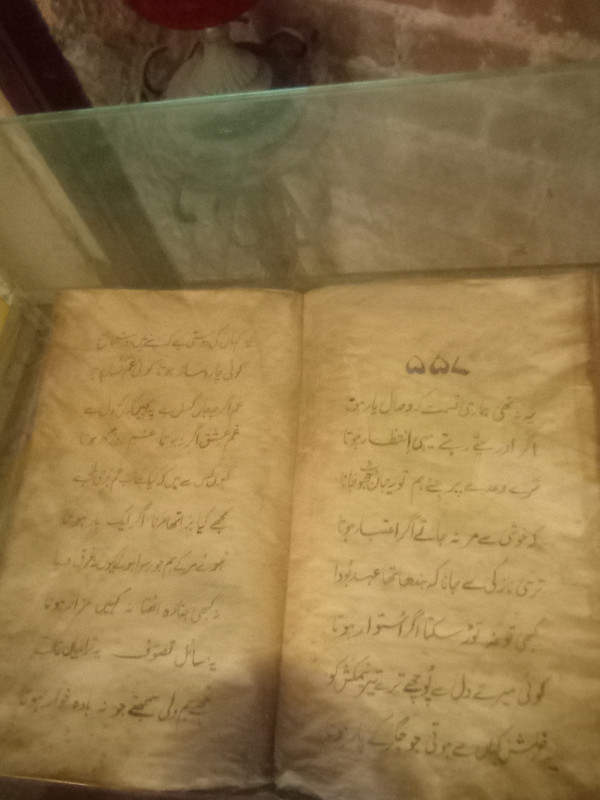 یہ نہ تھی ہماری قسمت کہ وصال یار ہوتا
اگر اور جیتے رہتے یہی انتظار ہوتا
ترے وعدے پر جئے ہم تو یہ جان جھوٹ جانا
کہ خوشی سے مر نہ جاتے اگر اعتبار ہوتا
تری نازکی سے جانا کہ بندھا تھا عہد بودا
کبھی تو نہ توڑ سکتا اگر اُستوار ہوتا
کوئی میرے دل سے پُوچھے ترے تیر نیمکش کو
یہ خلش کہاں سے ہوتی جو جگر کے پار ہوتا
یہ کہاں کی دوستی ہے کہ بنے ہیں دوست ناصح
کوئی چارہ ساز ہوتا کوئی غم گسار ہوتا
غم اگرچہ جاں گسل ہے پہ کہاں بچیں کہ دل ہے
غم عشق اگر نہ ہوتا غم روزگار ہوتا
کہوں کس سے میں کہ کیا ہے شب غم بری بلا ہے
مجھے کیا برا تھا مرنا اگر ایک بار ہوتا
ہوئے مر کے ہم جو رسوا ہوئے کیوں نہ غرق دریا
نہ کبھی جنازہ اٹھتا نہ کہیں مزار ہوتا
یہ مسائل تصوّف یہ ترا بیان غالب
تجھے ہم ولی سمجھتے جو نہ بادہ خوار ہوتا